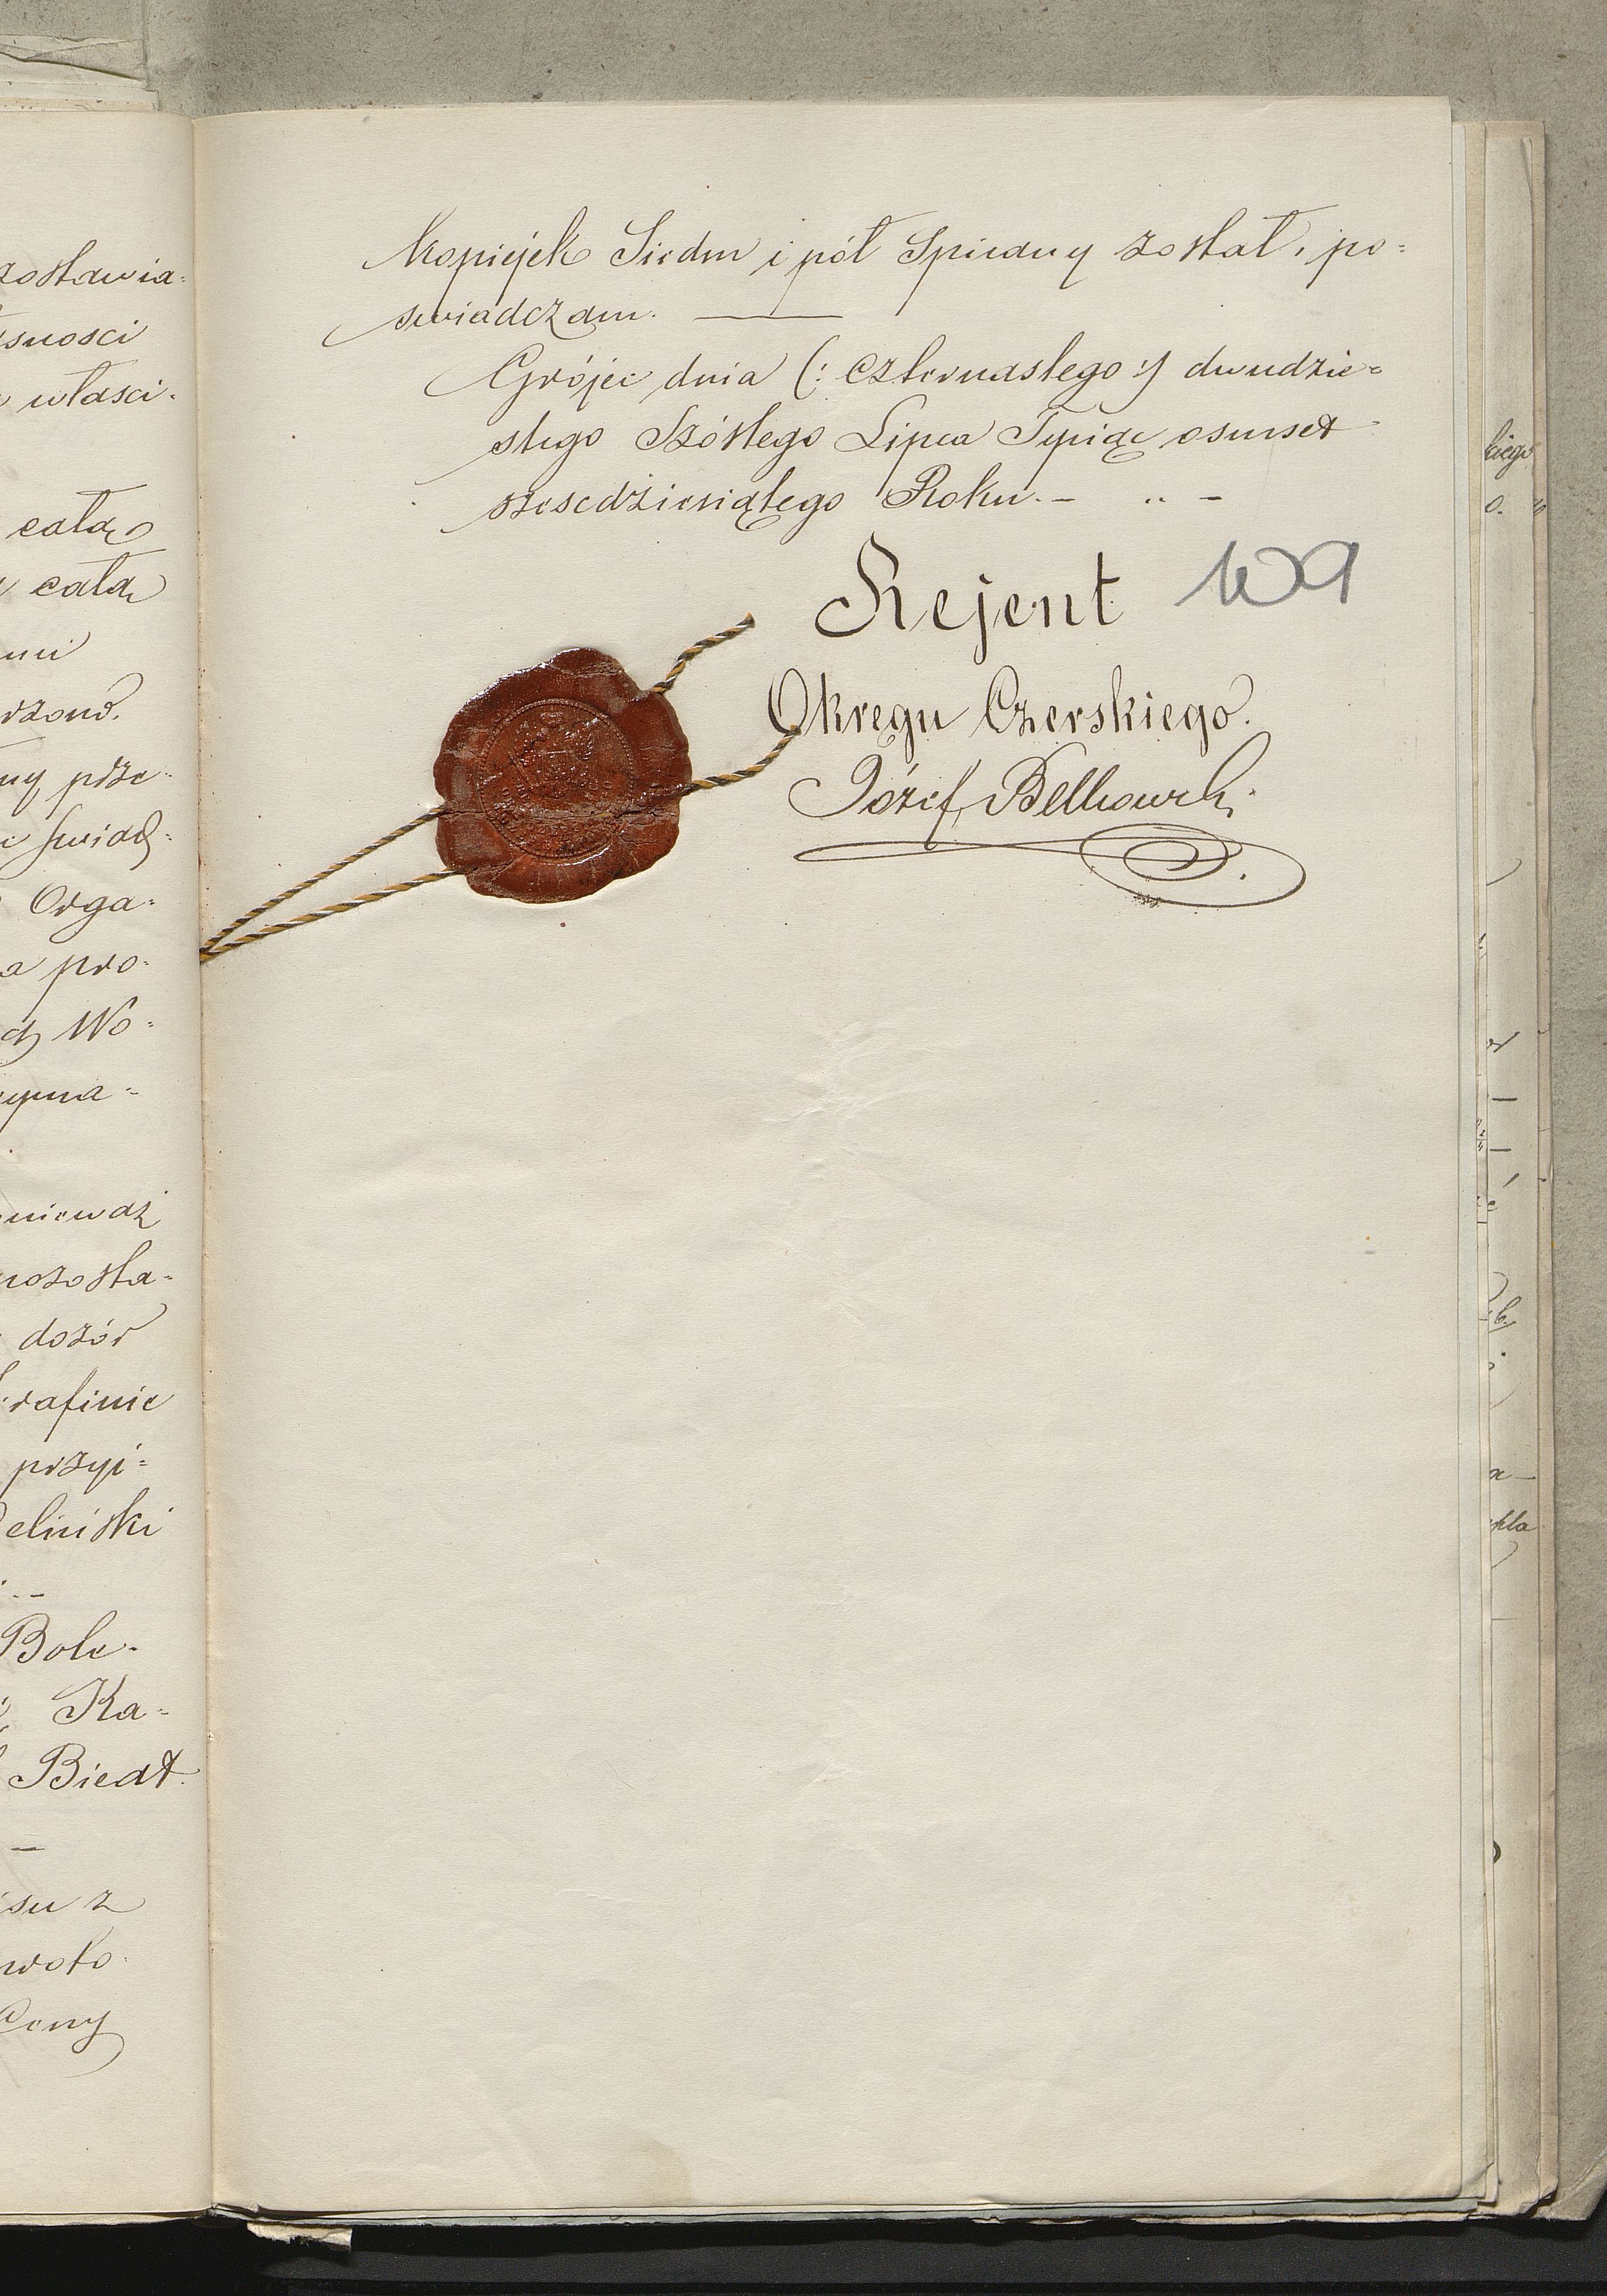 zostawia=
sności
własci.
całą
całą
rzond.
ny prze=
świad=
Orga=
a pro=
Wo=
ozosta=
dozór
rafinie
przyi=
eliński
Bole-
Ka=
Biedt.
isu z
woto
Ceny
Kopiejek Siedm i pół Spisany został, po=
swiadczam.
Grójec dnia (: czternastego :) dwudzie=
stego Szóstego Lipca Tysiąc osmset
szesédziesiątego Roku. -
Rejent 109
Okręgu Czerskiego.
Józef
kiego